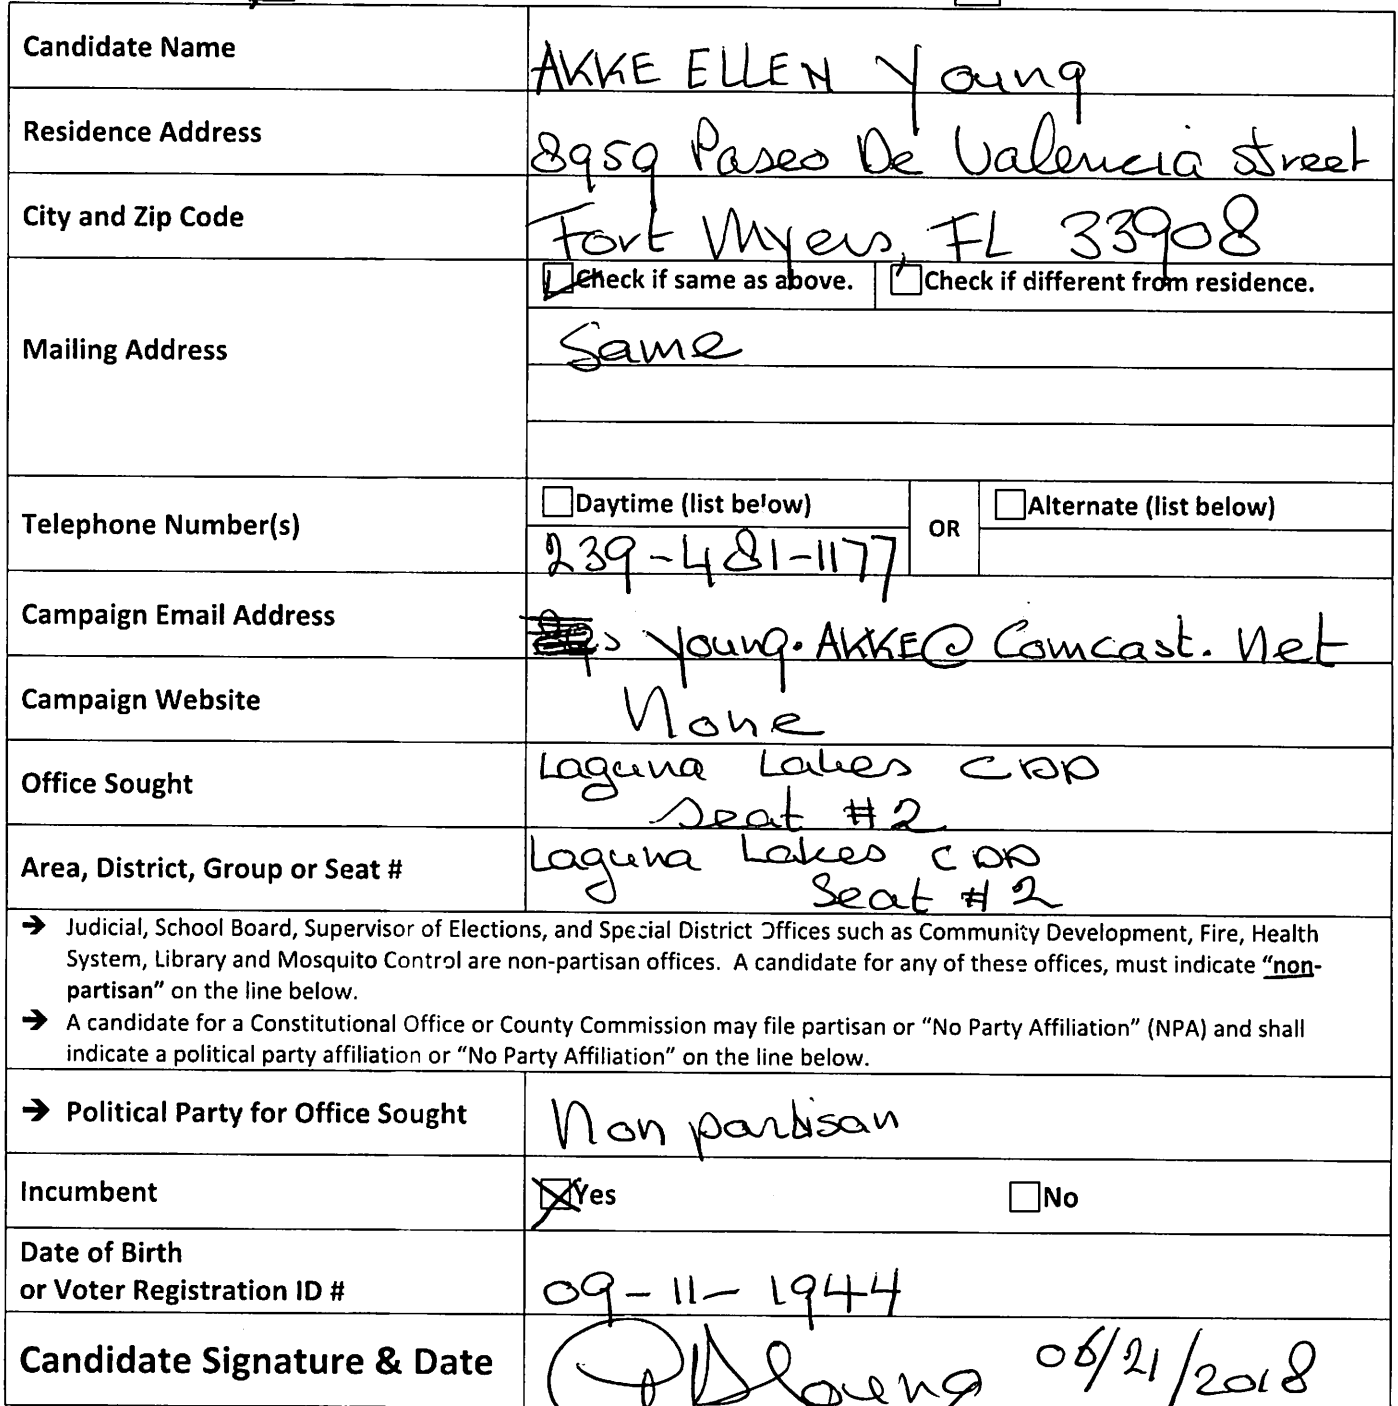 Candidate Name
AKKE ELLEN Young
Residence Address
8959 Paseo De Valencia street
City and Zip Code
Fort Myers, FL 33908
Check if same as above. Check if different from residence.
Mailing Address
Same
Telephone Number(s)
Daytime (list below) OR Alternate (list below)
239-481-1177
Campaign Email Address
young.AKKE@Comcast.net
Campaign Website
None
Office Sought
Laguna Lakes CDD
Seat #2
Area, District, Group or Seat #
Laguna Lakes CDD
Seat #2
→ Judicial, School Board, Supervisor of Elections, and Special District Offices such as Community Development, Fire, Health
System, Library and Mosquito Control are non-partisan offices. A candidate for any of these offices, must indicate "non-
partisan" on the line below.
→ A candidate for a Constitutional Office or County Commission may file partisan or "No Party Affiliation" (NPA) and shall
indicate a political party affiliation or "No Party Affiliation" on the line below.
→ Political Party for Office Sought
Non partisan
Incumbent
Yes No
Date of Birth
or Voter Registration ID #
09-11-1944
Candidate Signature & Date
06/21/2018